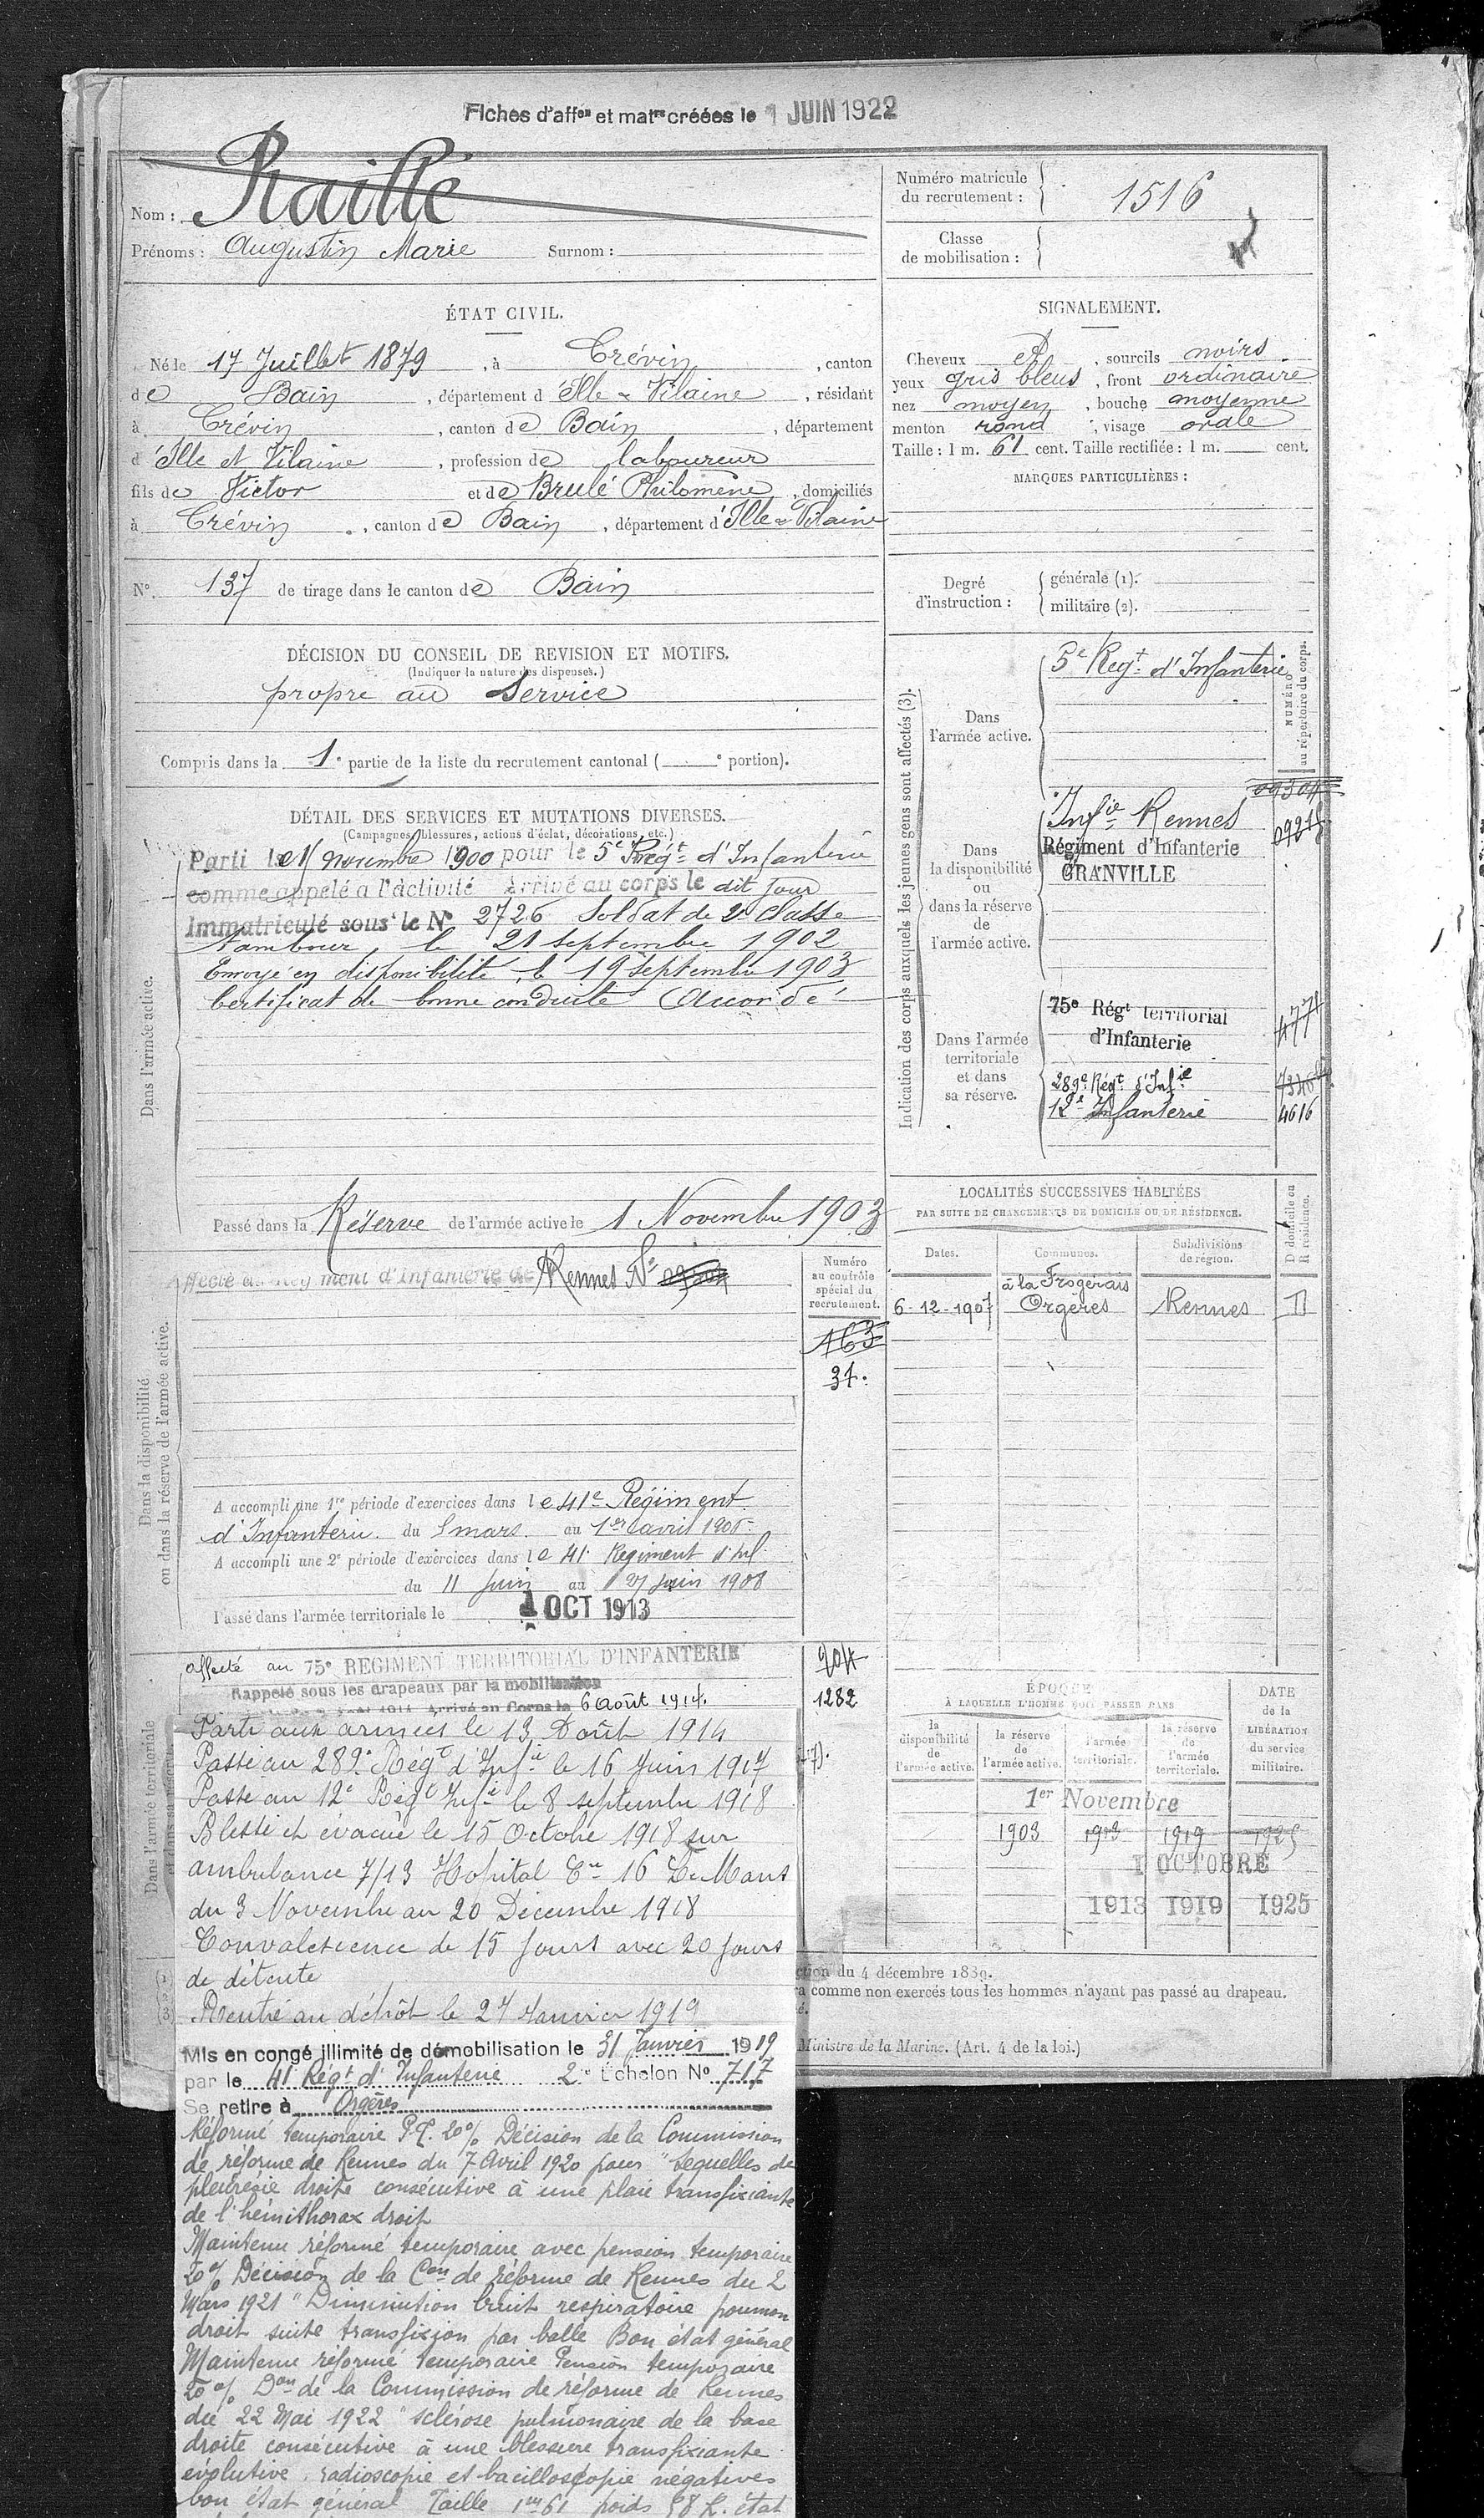 Fiches d'affon et matres créées le 1 JUIN 1922
Nom : Raillé
Prénoms : Augustin Marie Surnom :
Numéro matricule
du recrutement : 1516
Classe
de mobilisation :
ÉTAT CIVIL.
Né le 17 Juillet 1879, à Crévin, canton
de Bain, département d'Ille & Vilaine, résidant
à Crévin, canton de Bain, département
d'Ille et Vilaine, profession de laboureur
fils de Victor et de Brulé Philomène, domiciliés
à Crévin, canton de Bain, département d'Ille & Vilaine
N° 137 de tirage dans le canton de Bain
SIGNALEMENT.
Cheveux et, sourcils noirs
yeux gris bleus, front ordinaire
nez moyen, bouche moyenne
menton rond, visage ovale
Taille : 1 m. 61 cent. Taille rectifiée : 1 m. cent.
MARQUES PARTICULIÈRES :
Degré
d'instruction :
générale (1).
militaire (2).
DÉCISION DU CONSEIL DE REVISION ET MOTIFS.
(Indiquer la nature des dispenses.)
propre au Service
Compris dans la 1e partie de la liste du recrutement cantonal ( e portion).
DÉTAIL DES SERVICES ET MUTATIONS DIVERSES.
(Campagnes, blessures, actions d'éclat, décorations, etc.)
Dans l'armée active.
Parti le novembre 1900 pour le 5e Régt d'Infanterie
comme appelé à l'activité Arrivé au corps le dit jour
Immatriculé sous le N° 2726 Soldat de 2e classe
Tambour, le 21 septembre 1902
Envoyé en disponibilité le 19 septembre 1903
Certificat de bonne conduite Accordé
Passé dans la Réserve de l'armée active le 1 Novembre 1903
Indication des corps auxquels les jeunes gens sont affectés (3).
NUMÉRO
au répertoire du corps.
Dans
l'armée active.
5e Régt d'Infanterie
Dans
la disponibilité
ou
dans la réserve
de
l'armée active.
Infie Rennes
Régiment d'Infanterie
GRANVILLE
Dans l'armée
territoriale
et dans
sa réserve.
75e Régt territorial
d'Infanterie
289e Régt d'Infie
12e Infanterie 4616
Dans la disponibilité
ou dans la réserve de l'armée active.
Affecté au Régiment d'Infanterie de Rennes N°
Numéro
au contrôle
spécial du
recrutement.
163
37.
LOCALITÉS SUCCESSIVES HABITÉES
PAR SUITE DE CHANGEMENTS DE DOMICILE OU DE RÉSIDENCE.
D domicile ou
R résidence.
Dates. Communes. Subdivisions
de région.
à la Frogerais
6-12-1907 Orgères Rennes D
A accompli une 1re période d'exercices dans le 41e Régiment
d'Infanterie du mars au 1er avril
A accompli une 2e période d'exercices dans le 41e Régiment d'Inf
du 11 Juin au 27 Juin 1908
Passé dans l'armée territoriale le 1 OCT 1913
Dans l'armée territoriale
affecté au 75e REGIMENT TERRITORIAL D'INFANTERIE
Rappelé sous les drapeaux par la mobilisation
Arrivé au Corps le 6 août 1914.
1282
Parti aux armées le 13 Août 1914
Passé au 289e Régt d'Infie le 16 Juin 1917
Passé au 12e Régt Infie le 8 septembre 1918
Blessé et évacué le 15 Octobre 1918 sur
ambulance 7/13 Hopital Cre 16 Le Mans
du 3 Novembre au 20 Décembre 1918
Convalescence de 15 jours avec 20 jours
de détente
Rentré au dépôt le 27 Janvier 1919
Mis en congé illimité de démobilisation le 31 Janvier 1919
par le 41 Régt d'Infanterie 2e Echelon N° 717
Se retire à Orgères
Réformé temporaire P.T. 20% Décision de la Commission
de réforme de Rennes du 7 Avril 1920 pour "Séquelles de
pleurésie droite consécutive à une plaie transfixiante
de l'hémithorax droit
Maintenu réformé temporaire avec pension temporaire
20% Décision de la Con de réforme de Rennes du 2
Mars 1921 "Diminution bruit respiratoire poumon
droit suite transfixion par balle Bon état général
Maintenu réformé temporaire Pension temporaire
20% Don de la Commission de réforme de Rennes
du 22 Mai 1922 "sclérose pulmonaire de la base
droite consécutive à une blessure transfixiante
évolutive. radioscopie et bacilloscopie négatives
bon état général Taille 1m61 poids 58 K. état
ÉPOQUE
À LAQUELLE L'HOMME DOIT PASSER DANS
DATE
de la
LIBÉRATION
du service
militaire.
la
disponibilité
de
l'armée active.
la réserve
de
l'armée active.
l'armée
territoriale.
la réserve
de
l'armée
territoriale.
1er Novembre
1903 1913 1919 1925
1 OCTOBRE
1913 1919 1925
ction du 4 décembre 1889.
ra comme non exercés tous les hommes n'ayant pas passé au drapeau.
Ministre de la Marine. (Art. 4 de la loi.)